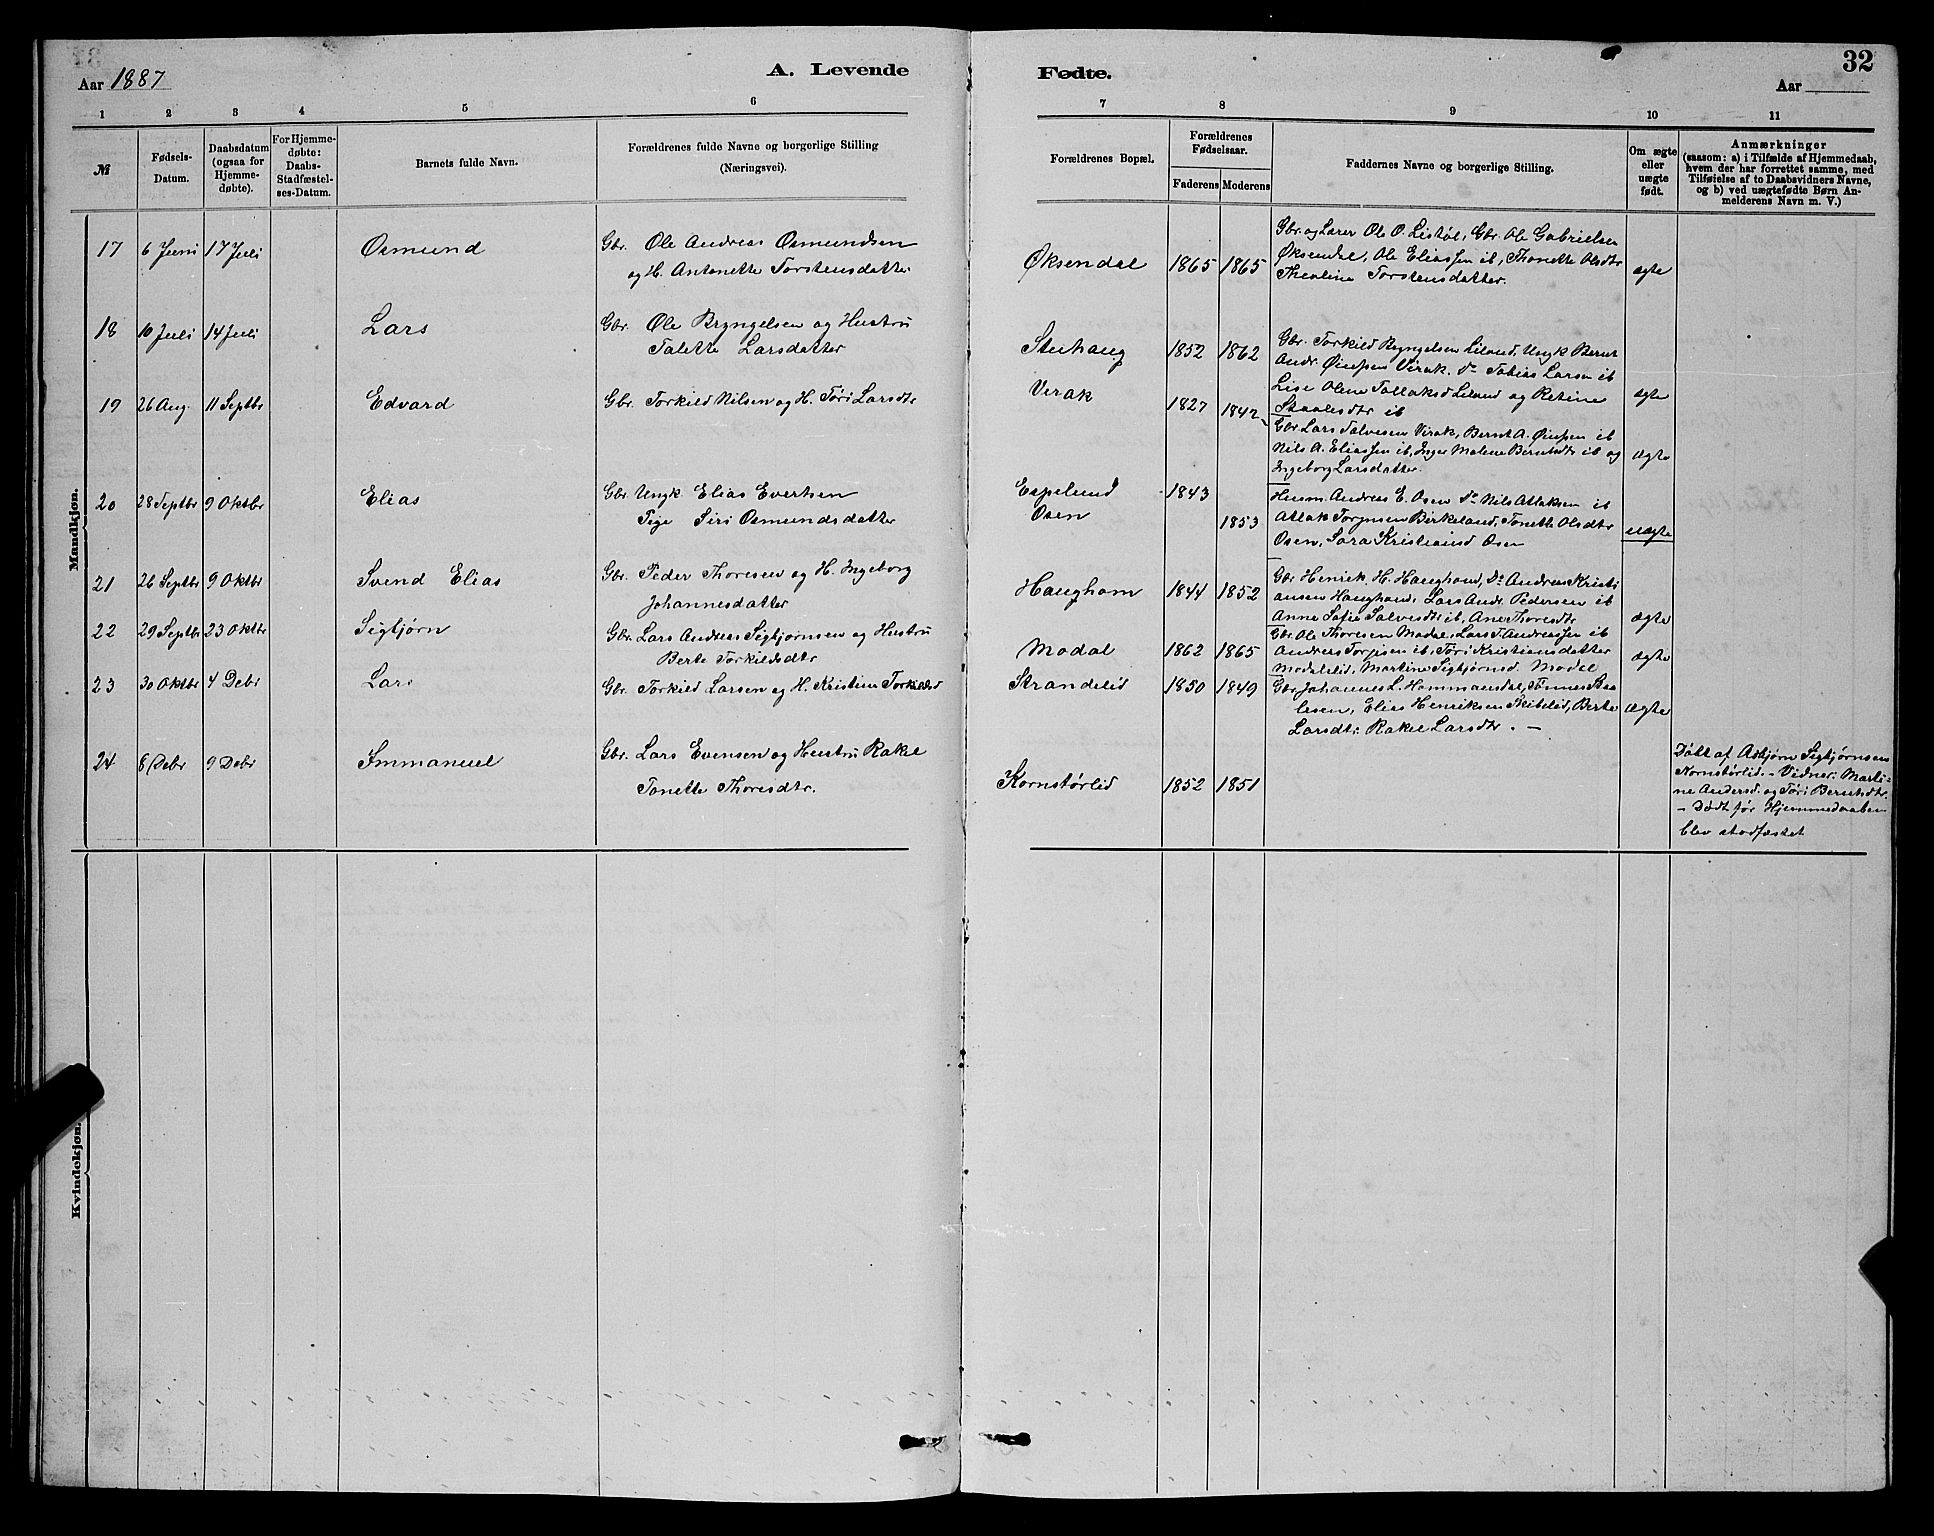 Aar 1887
A. Levende
Fødte.
32
Aar
1 2 3 4 5 6 7 8 9 10 11
№
Fødsels-
Datum.
Daabsdatum
(ogsaa for
Hjemme-
døbte).
For Hjemme-
døbte:
Daabs-
Stadfæstel-
ses-Datum.
Barnets fulde Navn.
Forældrenes fulde Navne og borgerlige Stilling
(Næringsvei).
Forældrenes Bopæl.
Forældrenes
Fødselsaar.
Faderens Moderens
Faddernes Navne og borgerlige Stilling.
Om ægte
eller
uægte
født.
Anmærkninger
(saasom: a) i Tilfælde af Hjemmedaab,
hvem der har forrettet samme, med
Tilføielse af to Daabsvidners Navne,
og b) ved uægtefødte Børn An-
melderens Navn m. V.)
Mandkjøn.
17 6 Juni 17 Juli Osmund
Gbr. Ole Andreas Osmundsen
og H. Antonette Torstensdatter
Øksendal 1865 1865
Gbr. og Lærer Ole O. Listøl, Gbr. Ole Gabrielsen
Øksendal, Ole Eliassen ib, Thonette Olsdtr
Theoline Torstensdatter.
ægte
18 10 Juli 14 Juli Lars
Gbr. Ole Bryngelsen og Hustru
Talette Larsdatter
Stenhaug 1852 1862
Gbr. Torkild Bryngelsen Liland, Ungk Bernt
Andr. Virak. Do Tobias Larsen ib
Lise Olene Tallaksd Liland og Retine
Staalesdtr ib
ægte
19 26 Aug. 11 Septbr Edvard
Gbr. Torkild Nilsen og H. Tøri Larsdtr
Virak 1827 1842
Gbr. Lars Salvesen Virak, Bernt A. ib
Nils A. Eliassen ib, Inger Malene Berntsdtr ib og
Ingeborg Larsdatter.
ægte
20 28 Septbr 9 Oktbr Elias
Gbr. Ungk. Elias Evertsen
Pige Siri Osmundsdatter
Espelund 1843
Osen 1853
Husm. Andreas E. Osen Do Nils Atlaksen ib
Atlak Torgersen Birkeland, Tonette Olsdtr
Osen, Sara Kristiansd Osen
uægte
21 26 Septbr 9 Oktbr Svend Elias
Gbr. Peder Thoresen og H. Ingeborg
Johannesdatter
Haughom 1844 1852
Gbr Henrik H. Haughom, Do Andreas Kristi
ansen Haughom, Lars Andr. Pedersen ib
Anne Sofie Salvesdtr ib, Ane Thoresdtr
ægte
22 29 Septbr 23 Oktbr Sigbjørn
Gbr. Lars Andreas Sigbjørnsen og Hustru
Berte Torkildsdtr
Modal 1862 1865
Gbr. Ole Thoresen Modal, Lars T Andreassen ib
Andreas Torjesen ib, Tøri Kristiansdatter
Modalslid, Martine Sigbjørnsd. Modal
ægte
23 30 Oktbr 4 Debr Lars
Gbr. Torkild Larsen og H. Kristine Torkildsd
Strandelid 1850 1849
Gbr. Johannes L. Hommansdal, Tønnes Staa
lesen, Elias Henriksen Skibelid, Berte
Larsdtr Rakel Larsdtr. –
ægte
24 8 Debr 9 Debr Immanuel
Gbr. Lars Evensen og Hustru Rakel
Tonette Thoresdtr.
Kornstørlid 1852 1851
Døbt af Asbjørn Sigbjørnsen
Kornstørlid. – Vidner: Marti-
ne Andersd. og Tøri Berntsdtr.
– Død før Hjemmedaaben
blev stadfæstet
Kvindekjøn.